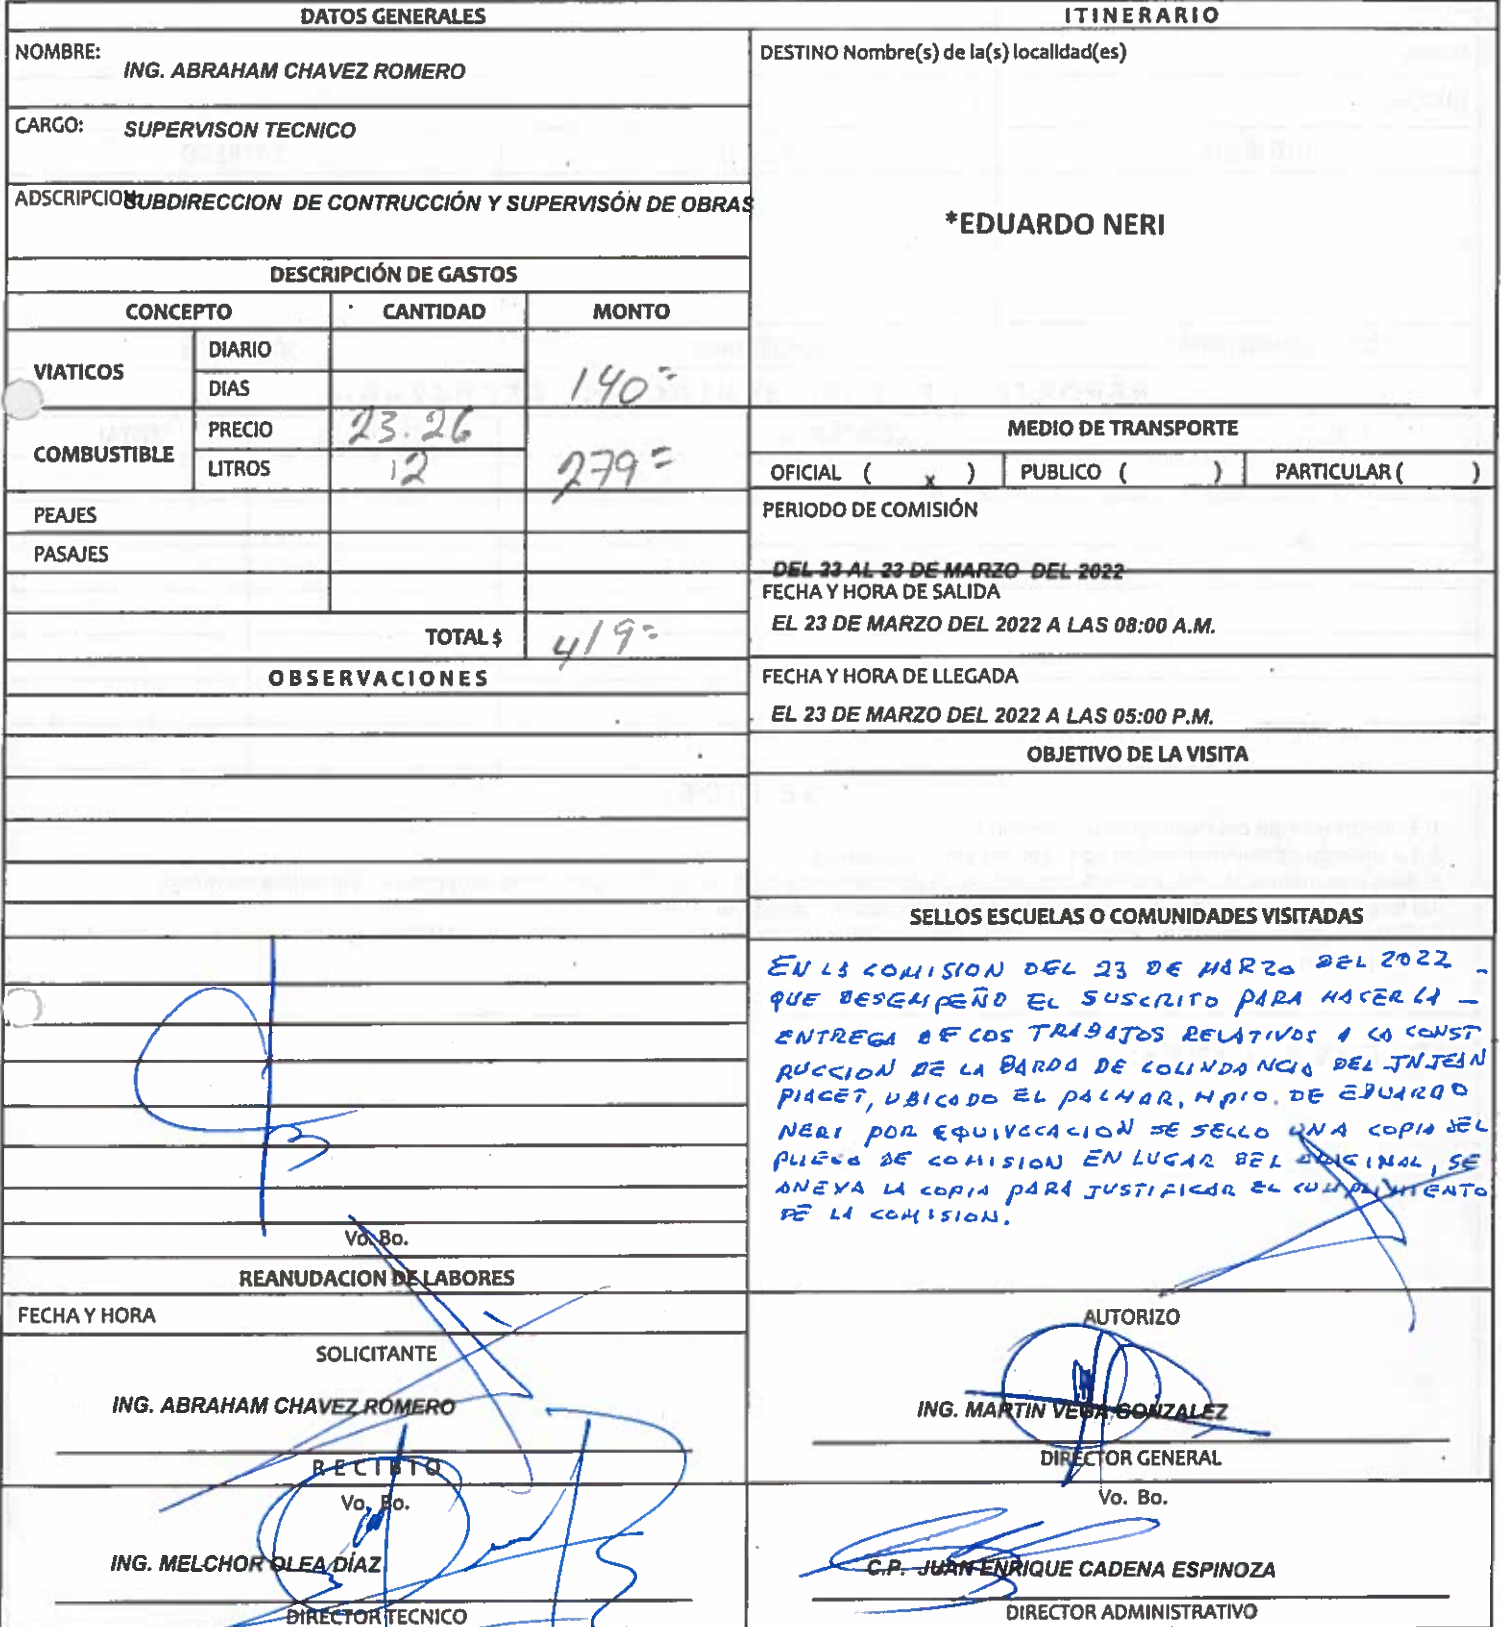 DATOS GENERALES
NOMBRE:
ING. ABRAHAM CHAVEZ ROMERO
CARGO: SUPERVISON TECNICO
ADSCRIPCION: SUBDIRECCION DE CONTRUCCIÓN Y SUPERVISÓN DE OBRAS
DESCRIPCIÓN DE GASTOS
CONCEPTO CANTIDAD MONTO
VIATICOS DIARIO
DIAS 140=
COMBUSTIBLE PRECIO 23.26
LITROS 12 279=
PEAJES
PASAJES
TOTAL $ 419=
OBSERVACIONES
Vo. Bo.
REANUDACION DE LABORES
FECHA Y HORA
SOLICITANTE
ING. ABRAHAM CHAVEZ ROMERO
RECIBIO
Vo. Bo.
ING. MELCHOR OLEA DÍAZ
DIRECTOR TECNICO
ITINERARIO
DESTINO Nombre(s) de la(s) localidad(es)
*EDUARDO NERI
MEDIO DE TRANSPORTE
OFICIAL ( x ) PUBLICO ( ) PARTICULAR ( )
PERIODO DE COMISIÓN
DEL 23 AL 23 DE MARZO DEL 2022
FECHA Y HORA DE SALIDA
EL 23 DE MARZO DEL 2022 A LAS 08:00 A.M.
FECHA Y HORA DE LLEGADA
EL 23 DE MARZO DEL 2022 A LAS 05:00 P.M.
OBJETIVO DE LA VISITA
SELLOS ESCUELAS O COMUNIDADES VISITADAS
EN LA COMISION DEL 23 DE MARZO DEL 2022 -
QUE DESEMPEÑO EL SUSCRITO PARA HACER LA -
ENTREGA DE LOS TRABAJOS RELATIVOS A LA CONST
RUCCION DE LA BARDA DE COLINDANCIA DEL JN JEAN
PIAGET, UBICADO EL PALMAR, MPIO. DE EDUARDO
NERI POR EQUIVOCACION SE SELLO UNA COPIA DEL
PLIEGO DE COMISION EN LUGAR DEL ORIGINAL, SE
ANEXA LA COPIA PARA JUSTIFICAR EL CUMPLIMIENTO
DE LA COMISION.
AUTORIZO
ING. MARTIN VEGA GONZALEZ
DIRECTOR GENERAL
Vo. Bo.
C.P. JUAN ENRIQUE CADENA ESPINOZA
DIRECTOR ADMINISTRATIVO